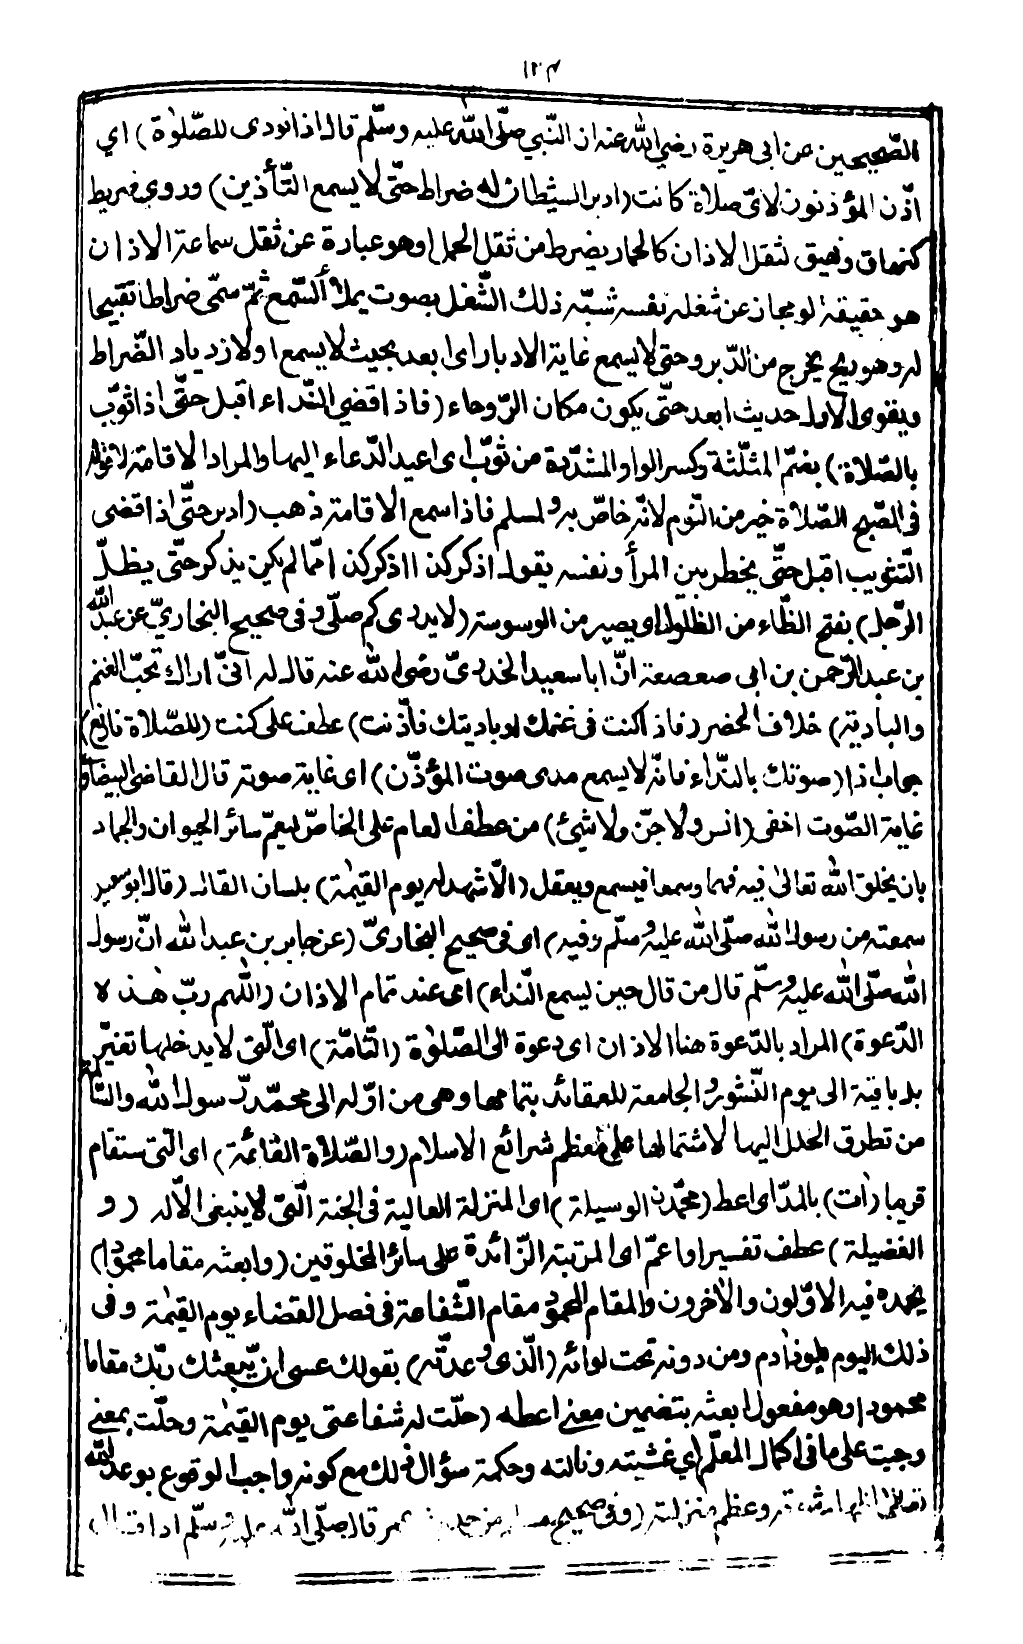 ١٢٣
الصّحيحين عن ابى هريرة رضي الله عنه ان النّبي صلّى الله عليه وسلّم قال اذا نودى للصّلوٰة) اي
اذّن المؤذنون لاىّ صلاة كانت (ادبر الشيطان له ضراط حتّى لا يسمع التّأذين) وروي ضريط
كنهاق ونهيق لثقل الاذان كالحمار يضرط من ثقل الحمل وهو عبارة عن ثقل سماعة الاذان
هو حقيقة او مجاز عن شغله نفسه شبّه ذلك الشّغل بصوت يملأ السّمع ثمّ سمّى ضراطا تقبيحا
له وهو ريح يخرج من الدّبر وحتى لا يسمع غاية الادبار اى ابعد بحيث لا يسمع او لازدياد الضّراط
ويقوى الاول حديث ابعد حتّى يكون مكان الرّوحاء (فاذا قضي النّداء اقبل حتّى اذا ثوّب
بالصّلاة) بضمّ المثلّثة وكسر الواو المشدّدة من ثوّب اى اعيد الدّعاء اليها والمراد الاقامة لا قوله
فى الصّبح الصّلاة خير من النّوم لانّه خاصّ به ولمسلم فاذا سمع الاقامة ذهب (ادبر حتّى اذا قضى
التّثويب اقبل حتّى يخطر بين المرأ ونفسه يقول اذكر كذا اذكر كذا ممّا لم يكن يذكر حتّى يظلّ
الرّجل) بفتح الظّاء من الظلول اى يصير من الوسوسة (لا يدرى كم صلّى وفى صحيح البخاريّ عن عبد الله
بن عبد الرّحمن بن ابى صعصعة انّ ابا سعيد الخدرىّ رضى الله عنه قال له انّى اراك تحبّ الغنم
والبادية) خلاف الحضر (فاذا كنت فى غنمك او باديتك فأذّنت) عطف على كنت (للصّلاة فارفع)
جواب اذا (صوتك بالنّداء فانّه لا يسمع مدى صوت المؤذّن) اى غاية صوته قال القاضى البيضاوى
غاية الصّوت اخفى (انس ولا جنّ ولا شئ) من عطف العام على الخاصّ ليعمّ سائر الحيوان والجماد
بان يخلق الله تعالى فيه فهما وسمعا فيسمع ويعقل (الّا شهد له يوم القيٰمة) بلسان القال (قال ابو سعيد
سمعته من رسول الله صلّى الله عليه وسلّم وفيه) اى فى صحيح البخاريّ (عن جابر بن عبد الله انّ رسول
الله صلّى الله عليه وسلّم قال من قال حين يسمع النّداء) اى عند تمام الاذان (اللّهم ربّ هذه
الدّعوة) المراد بالدّعوة هنا الاذان اى دعوة الى الصّلوٰة (التّامّة) اى الّتى لا يدخلها تغيّر
بل باقية الى يوم النّشور والجامعة للعقائد بتمامها وهى من اوّله الى محمّد رّسول الله والتّامّة
من تطرق الخلل اليها لاشتمالها على معظم شرائع الاسلام (والصّلاة القائمة) اى الّتى ستقام
قريبا (اٰت) بالمدّ اى اعط (محمّدن الوسيلة) اى المنزلة العالية فى الجنة الّتى لا ينبغى الّا له (و
الفضيلة) عطف تفسير او اعمّ اى المرتبة الزّائدة على سائر المخلوقين (وابعثه مقاما محمودا)
يحمده فيه الاوّلون والاٰخرون والمقام المحمود مقام الشّفاعة فى فصل القضاء يوم القيٰمة وفى
ذلك اليوم يكون اٰدم ومن دونه تحت لوائه (الّذى وعدته) بقولك عسى ان يّبعثك ربّك مقاما
محمودا وهو مفعول ابعثه بتضمين معنى اعطه (حلّت له شفاعتى يوم القيٰمة وحلّت بمعنى
وجبت على ما فى اكمال المعلّم اي غشيته ونالته وحكمة سؤال ذلك مع كونه واجب الوقوع بوعد الله
تعالى اظهار شرفه وعظم منزلته (وفى صحيح مسلم عن عمر قال صلّى الله عليه وسلّم اذا قال